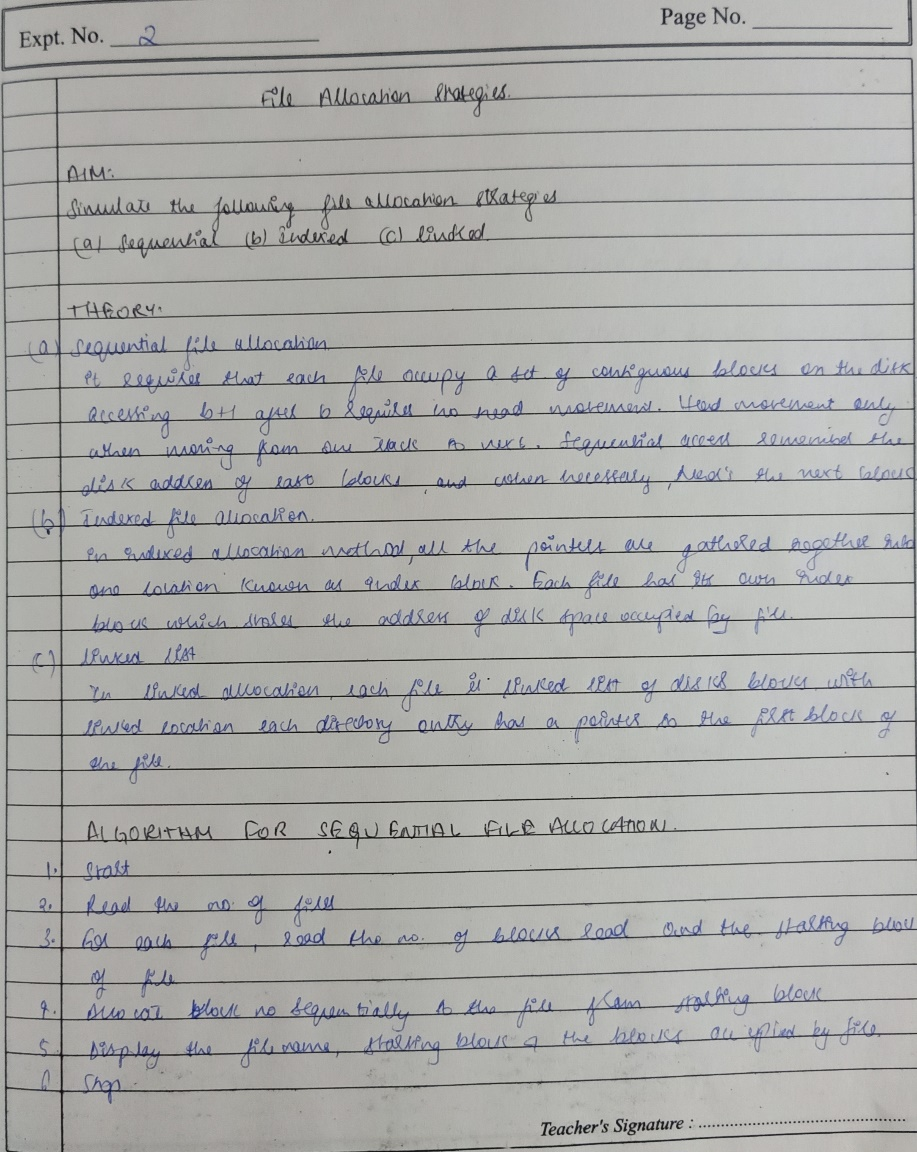 Expt. No. 2
Page No.
File Allocation Strategies.
AIM:
Simulate the following file allocation strategies
(a) Sequential (b) Indexed (c) linked.
THEORY:
(a) Sequential file allocation
It requires that each file occupy a set of contiguous blocks on the disk
accessing b+1 after b requires no head movement. Head movement only
when moving from one track to next. Sequential access the
disk address of last block and when necessary, reads the next block
(b) Indexed file allocation.
In indexed allocation method, all the pointers are gathered together into
one location known as index block. Each file has its own index
block which stores the address of disk space occupied by file.
(c) linked list
In linked allocation, each file is linked list of disks blocks with
linked location each directory entry has a pointer to the first block of
the file.
ALGORITHM FOR SEQUENTIAL FILE ALLOCATION.
1. Start
2. Read the no. of files
3. For each file, read the no. of blocks and the starting block
of file
4. Allocate block no sequentially to the file from starting block
5. Display the file name, starting block & the blocks occupied by file.
6 Stop.
Teacher's Signature :